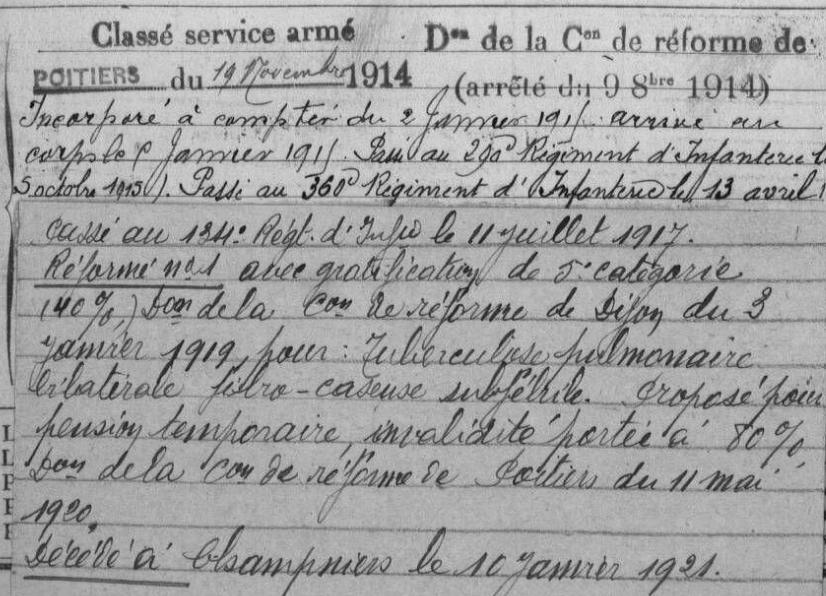 Classé service armé Don de la Con de réforme de
POITIERS du 19 Novembre 1914 (arrêté du 9 8bre 1914)
Incorporé à compter du 2 Janvier 1915 arrivé au
corps le Janvier 1915. Passé au 290e Régiment d'Infanterie le
5 octobre 1915). Passé au 360e Régiment d'Infanterie le 13 avril
Passé au 134e Régt. d'Infie le 11 juillet 1917.
Réformé no 1 avec gratification de 5e catégorie
(40%) Don de la Con de réforme de Dijon du 3
Janvier 1919, pour : Tuberculose pulmonaire
bilatérale fibro-caséeuse subfébrile. Proposé pour
pension temporaire, invalidité portée à 80%
Don de la Con de réforme de Poitiers du 11 mai
1920.
Décédé à Champniers le 10 Janvier 1921.